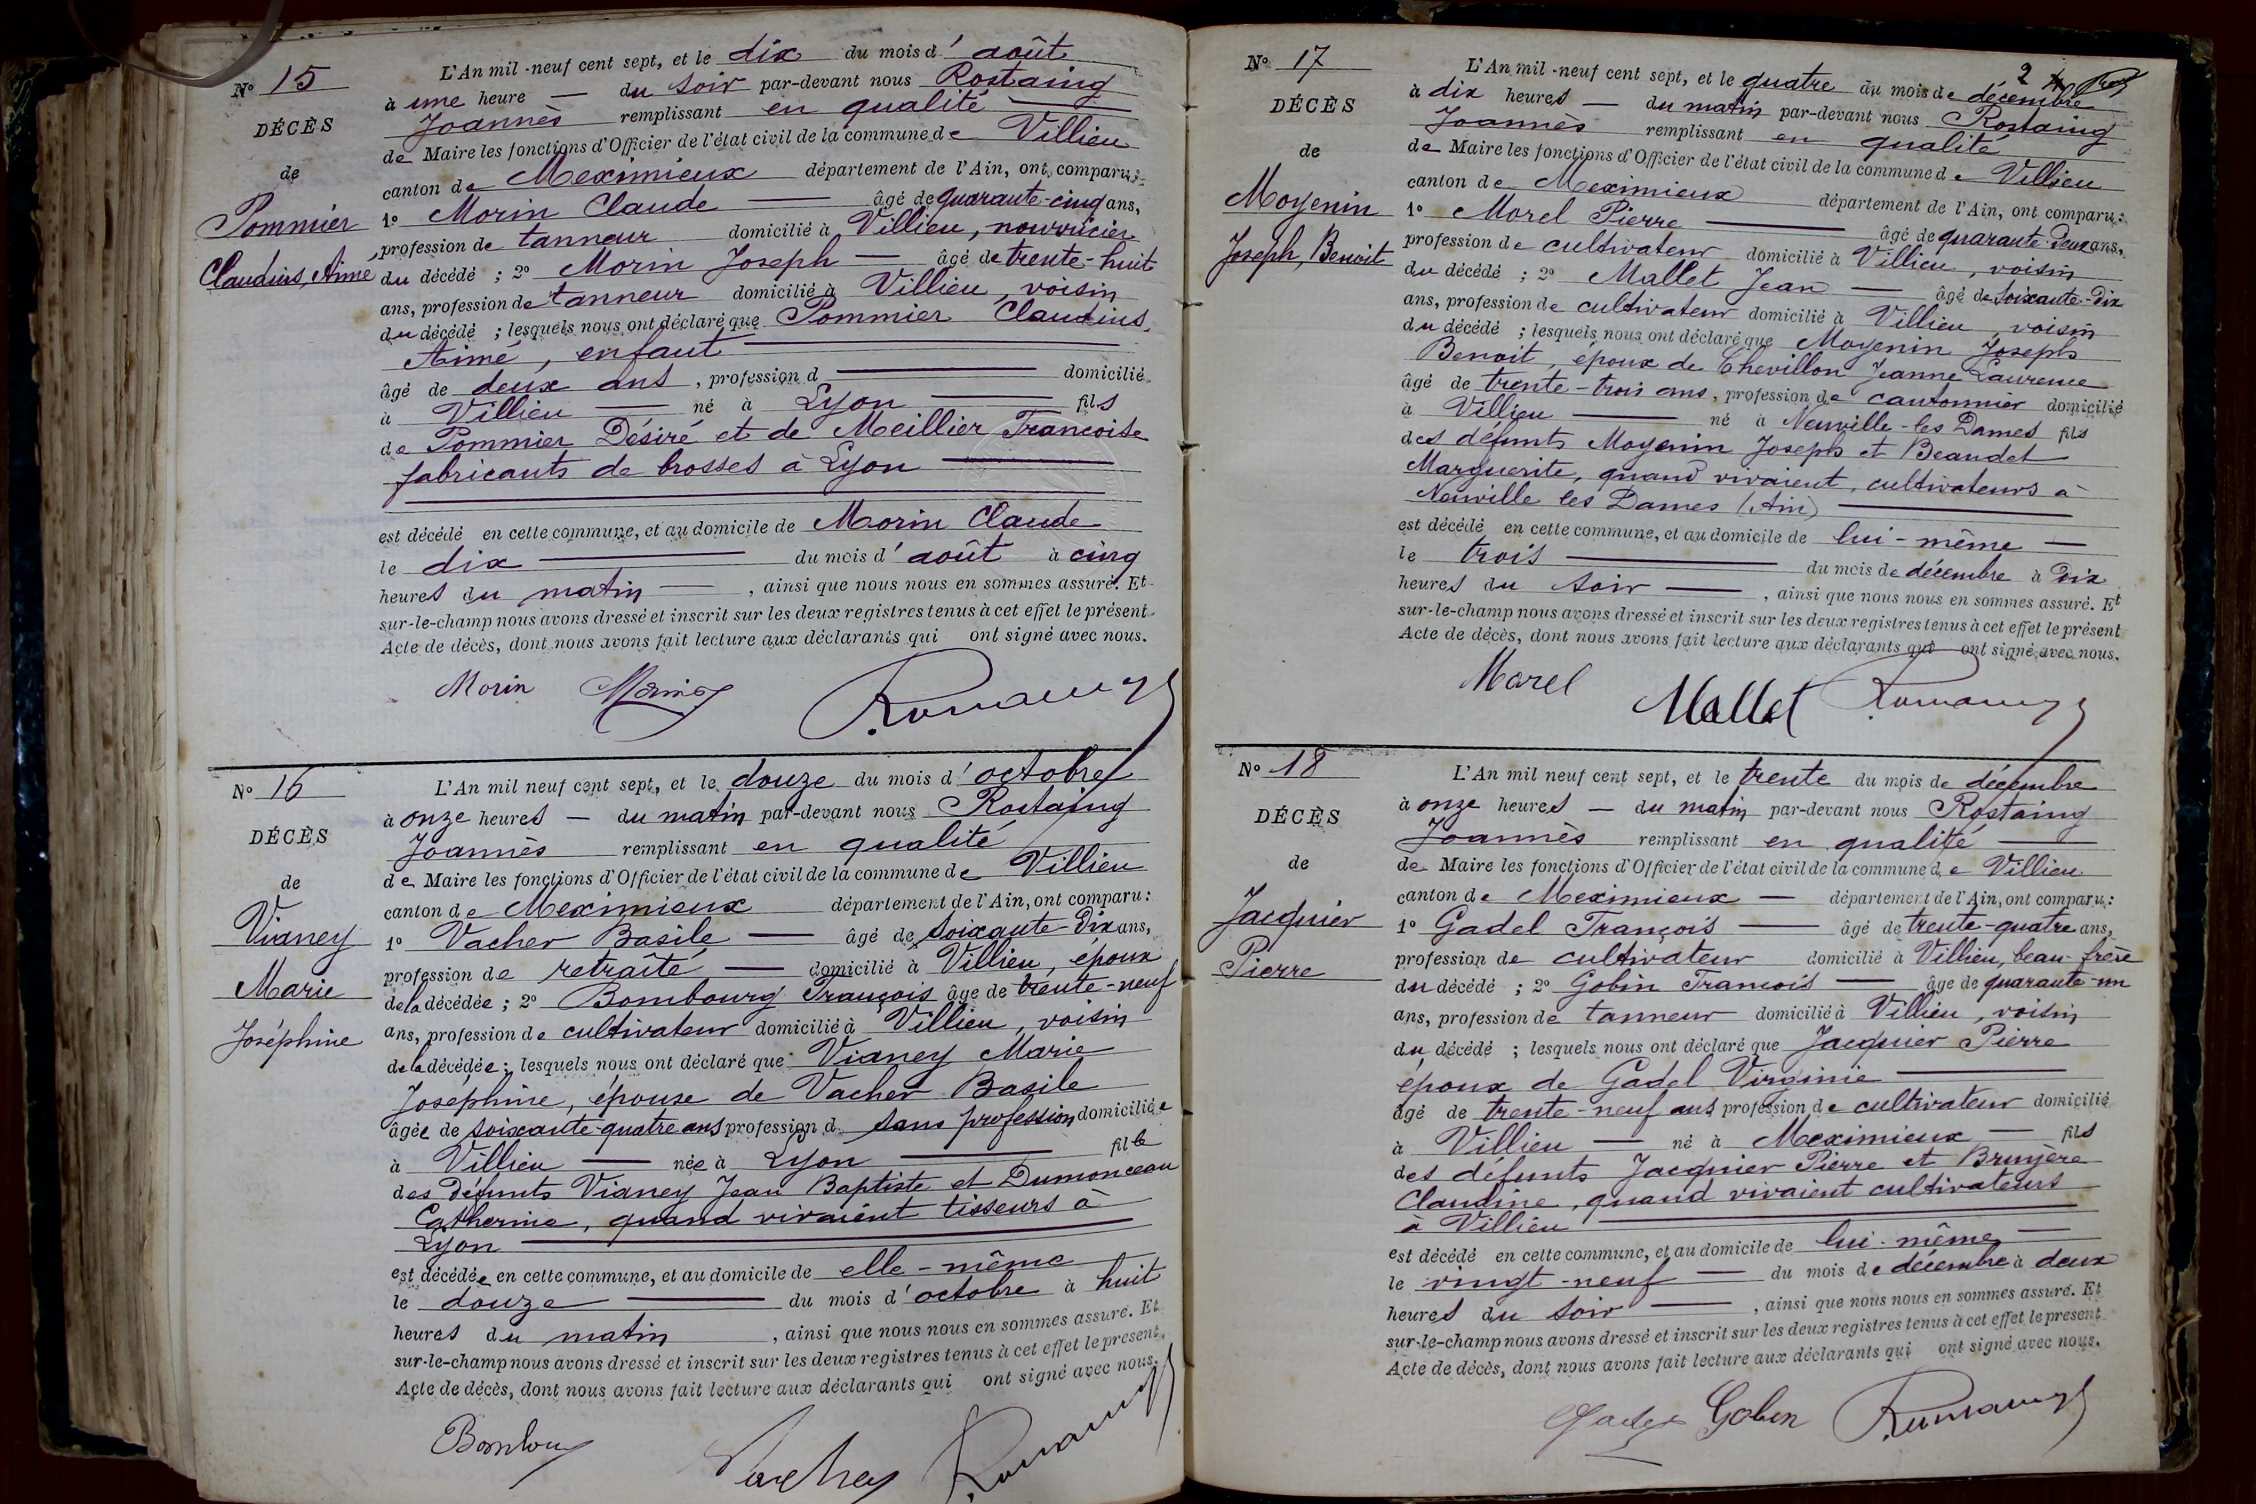 N° 15
DÉCÈS
de
Pommier
Claudius, Aimé
L'An mil-neuf cent sept, et le dix du mois d'août
à une heure — du soir par-devant nous Rostaing
Joannès remplissant en qualité
de Maire les fonctions d'Officier de l'état civil de la commune de Villieu
canton de Meximieux département de l'Ain, ont comparu :
1° Morin Claude — âgé de quarante-cinq ans,
profession de tanneur domicilié à Villieu, nourricier
du décédé ; 2° Morin Joseph — âgé de trente-huit
ans, profession de tanneur domicilié à Villieu, voisin
du décédé ; lesquels nous ont déclaré que Pommier Claudius,
Aimé, enfant
âgé de deux ans, profession d — domicilié
à Villieu — né à Lyon — fils
de Pommier Désiré et de Meillier Francoise
fabricants de brosses à Lyon
est décédé en cette commune, et au domicile de Morin Claude
le dix — du mois d'août à cinq
heures du matin —, ainsi que nous nous en sommes assuré. Et
sur-le-champ nous avons dressé et inscrit sur les deux registres tenus à cet effet le présent
Acte de décès, dont nous avons fait lecture aux déclarants qui ont signé avec nous.
Morin
N° 16
DÉCÈS
de
Vianey
Marie
Joséphine
L'An mil neuf cent sept, et le douze du mois d'octobre
à onze heures — du matin par-devant nous Rostaing
Joannès remplissant en qualité
de Maire les fonctions d'Officier de l'état civil de la commune de Villieu
canton de Meximieux département de l'Ain, ont comparu :
1° Vacher Basile — âgé de soixante-Dix ans,
profession de retraité — domicilié à Villieu, époux
de la décédée ; 2° Bombourg François âge de trente-neuf
ans, profession de cultivateur domicilié à Villieu, voisin
de la décédée ; lesquels nous ont déclaré que Vianey Marie
Joséphine, épouse de Vacher Basile
âgée de soixante-quatre ans profession d sans profession domiciliée
à Villieu — née à Lyon — fille
des défunts Vianey Jean Baptiste et Dumonceau
Catherine, quand vivaient tisseurs à
Lyon
est décédée en cette commune, et au domicile de elle-même
le douze — du mois d'octobre à huit
heures du matin, ainsi que nous nous en sommes assuré. Et
sur-le-champ nous avons dressé et inscrit sur les deux registres tenus à cet effet le présent
Acte de décès, dont nous avons fait lecture aux déclarants qui ont signé avec nous.
Vacher
N° 17
DÉCÈS
de
Moyenin
Joseph, Benoit
2
L'An mil-neuf cent sept, et le quatre du mois de décembre
à dix heures — du matin par-devant nous Rostaing
Joannès remplissant en qualité
de Maire les fonctions d'Officier de l'état civil de la commune de Villieu
canton de Meximieux département de l'Ain, ont comparu :
1° Morel Pierre — âgé de quarante-Deux ans,
profession de cultivateur domicilié à Villieu, voisin
du décédé ; 2° Mallet Jean — âgé de soixante-Dix
ans, profession de cultivateur domicilié à Villieu, voisin
du décédé ; lesquels nous ont déclaré que Moyenin Joseph
Benoit, époux de Chevillon Jeanne Laurence
âgé de trente-trois ans, profession de cantonnier domicilié
à Villieu — né à Neuville-les Dames fils
des défunts Moyenin Joseph et Beaudet
Marguerite, quand vivaient, cultivateurs à
Neuville les Dames (Ain)
est décédé en cette commune, et au domicile de lui-même —
le trois — du mois de décembre à Dix
heures du soir —, ainsi que nous nous en sommes assuré. Et
sur-le-champ nous avons dressé et inscrit sur les deux registres tenus à cet effet le présent
Acte de décès, dont nous avons fait lecture aux déclarants qui ont signé avec nous.
Morel Mallet
N° 18
DÉCÈS
de
Jacquier
Pierre
L'An mil neuf cent sept, et le trente du mois de décembre
à onze heures — du matin par-devant nous Rostaing
Joannès remplissant en qualité —
de Maire les fonctions d'Officier de l'état civil de la commune de Villieu
canton de Meximieux — département de l'Ain, ont comparu :
1° Gadel François — âgé de trente-quatre ans,
profession de cultivateur domicilié à Villieu, beau-frère
du décédé ; 2° Gobin Francois — âge de quarante-un
ans, profession de tanneur domicilié à Villieu, voisin
du décédé ; lesquels nous ont déclaré que Jacquier Pierre
époux de Gadel Virginie
âgé de trente-neuf ans profession de cultivateur domicilié
à Villieu — né à Meximieux — fils
des défunts Jacquier Pierre et Bruyère
Claudine, quand vivaient cultivateurs
à Villieu
est décédé en cette commune, et au domicile de lui-même —
le vingt-neuf — du mois de décembre à deux
heures du soir —, ainsi que nous nous en sommes assuré. Et
sur-le-champ nous avons dressé et inscrit sur les deux registres tenus à cet effet le présent
Acte de décès, dont nous avons fait lecture aux déclarants qui ont signé avec nous.
Gobin